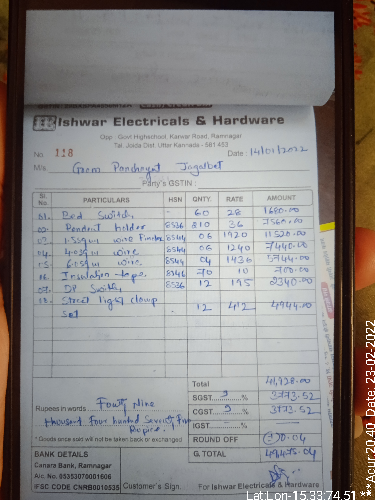 Ishwar Electricals & Hardware
Opp : Govt Highschool, Karwar Road, Ramnagar
Tal. Joida Dist. Uttar Kannada - 581 453
No. 118 Date : 14/01/2022
M/s. Gram Panchayat Jagalbet
Party's GSTIN :
Sl. No. PARTICULARS HSN QNTY. RATE AMOUNT
01. Bed Switch - 60 28 1680.00
02. Pendent holder 8536 210 36 7560.00
1.5sqm wire 8544 06 1920 11520.00
04. 4.0sqm wire 8544 06 1240 7440.00
wire 8544 04 1436 5744.00
Insulation tape 8546 70 10 700.00
07. DP Switch 8536 12 195 2340.00
Street light clamp
set 12 412 4944.00
Total 41928.00
SGST 9 % 3773.52
Rupees in words Fourty Nine CGST 9 % 3773.52
thousand Four hundred Seventy Five IGST %
Rupees
* Goods once sold will not be taken back or exchanged ROUND OFF
BANK DETAILS G. TOTAL 49475.04
Canara Bank, Ramnagar
A/c. No. 05353070001606
IFSC CODE CNRB0010535 Customer's Sign. For Ishwar Electricals & Hardware
Lat,Lon-15.33:74.51***Acur 20.40 Date: 23-02-2022